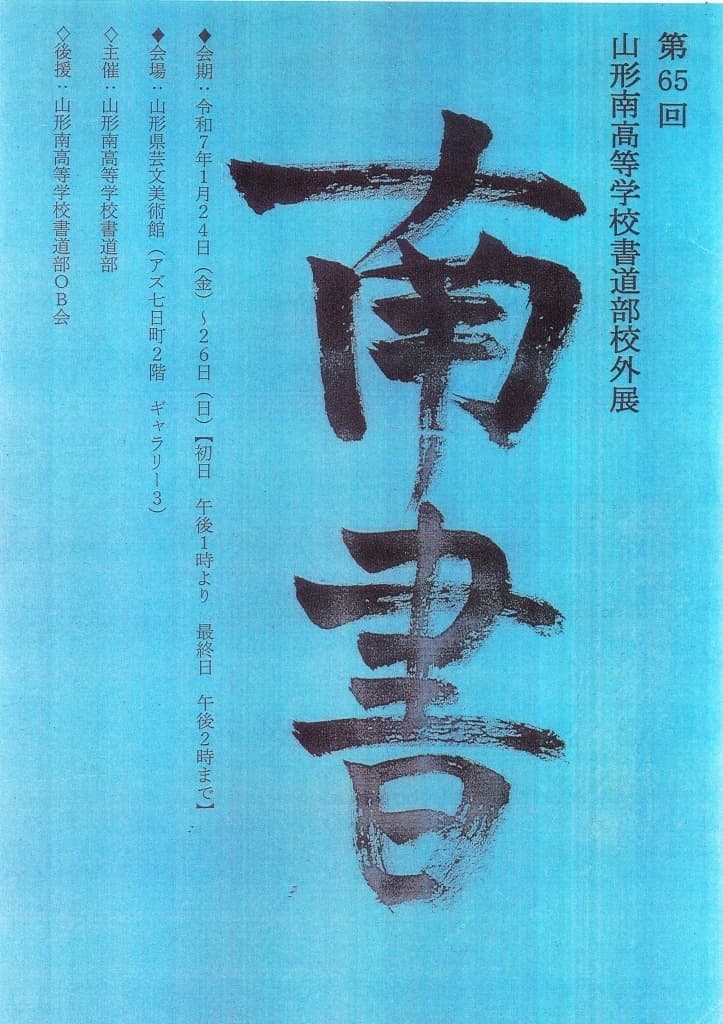 第65回
山形南高等学校書道部校外展
南書
◆会期：令和7年1月24日（金）～26日（日）【初日　午後1時より　最終日　午後2時まで】
◆会場：山形県芸文美術館（アズ七日町2階　ギャラリー3）
◇主催：山形南高等学校書道部
◇後援：山形南高等学校書道部OB会